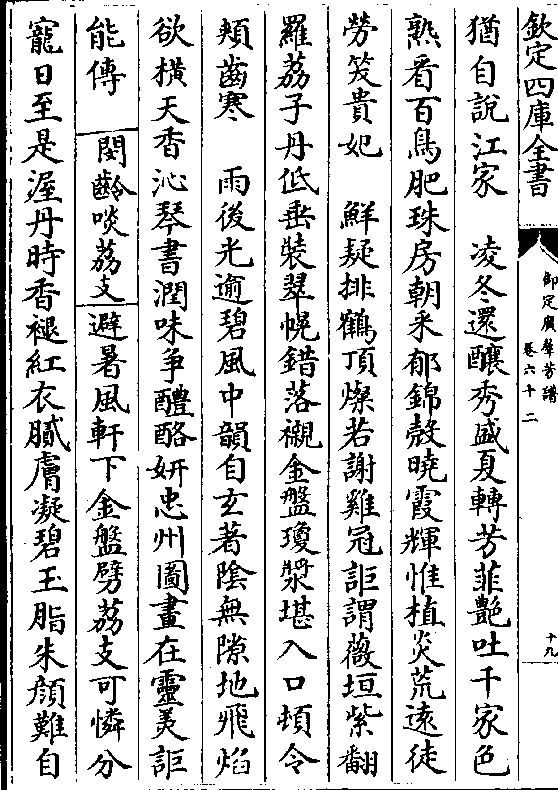 欽定四庫全書
御定廣羣芳譜
卷六十二
十九
猶自說江家　凌冬還釀秀盛夏轉芳菲艷吐千家色
熟看百鳥肥珠房朝采郁錦殼曉霞輝惟植炎荒遠徒
勞笈貴妃　鮮疑排鶴頂燦若謝雞冠詎謂薇垣紫翻
羅荔子丹低垂裝翠幌錯落襯金盤瓊漿堪入口頓令
頰齒寒　雨後光逾碧風中韻自玄著陰無隙地飛焰
欲橫天香沁琴書潤味爭醴酪妍忠州圖畫在靈美詎
能傳　閔齡啖荔支避暑風軒下金盤劈荔支可憐分
寵日至是渥丹時香褪紅衣膩膚凝碧玉脂朱顏難自